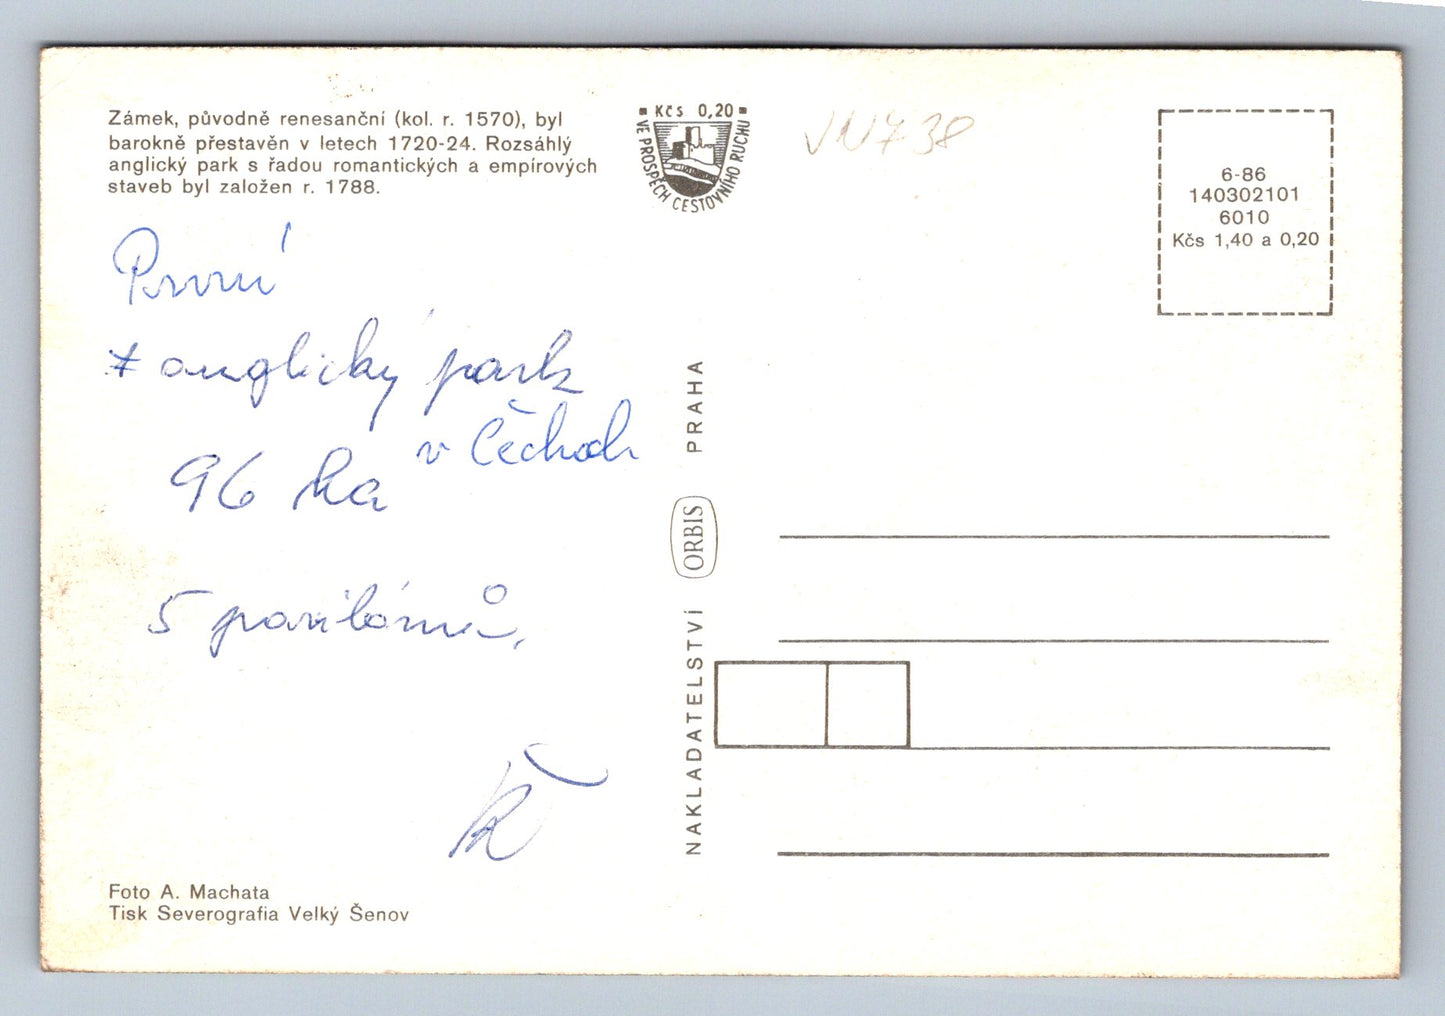 Zámek, původně renesanční (kol. r. 1570), byl
barokně přestavěn v letech 1720-24. Rozsáhlý
anglický park s řadou romantických a empírových
staveb byl založen r. 1788.
Kčs 0,20
VE PROSPĚCH CESTOVNÍHO RUCHU
6-86
140302101
6010
Kčs 1,40 a 0,20
První
anglický park
v Čechách
96 ha
5 pavilónů,
NAKLADATELSTVÍ ORBIS PRAHA
Foto A. Machata
Tisk Severografia Velký Šenov